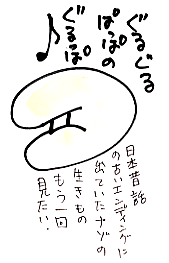 ぐるぐる
ぱっぽの
ぐるっぽ♪
日本昔話
の古いエンディングに
出ていたナゾの
生きもの
もう一回
見たい!